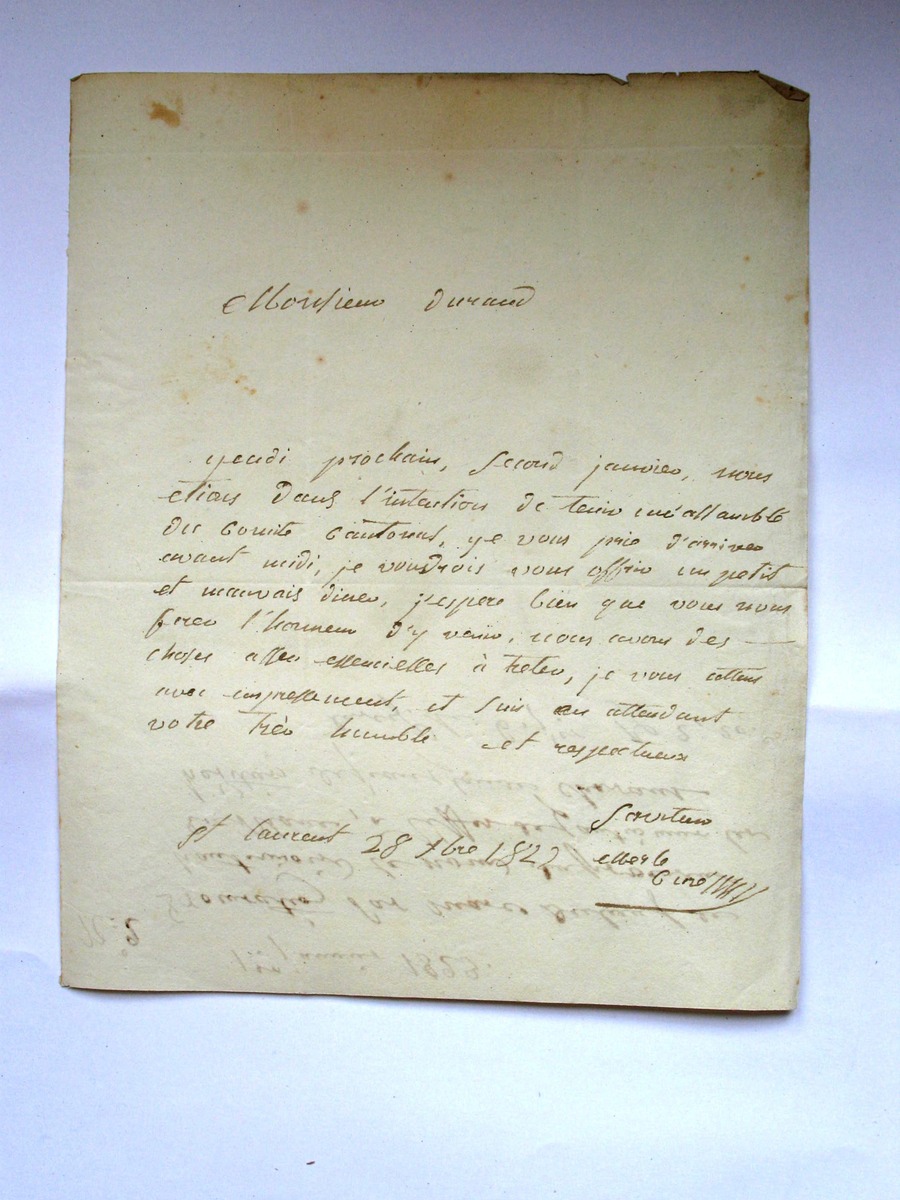 Monsieur durand
yeudi prochain, second janvier, nous
etions dans l'intention de tenir une assamblé
du Comite Cantonal, ye vous prie d'arriver
avant midi, je voudrois vous offrir un petit
et mauvais diner, j'espere bien que vous nous
ferer l'honneur d'y venir, nous avons des
choses asser essencielles à treter, je vous attens
avec empressement, et suis en attendant
votre très humble et respectueux
Serviteur
st laurent 28 xbre 1822
Curé
N.° 2
1er janvier 1823.